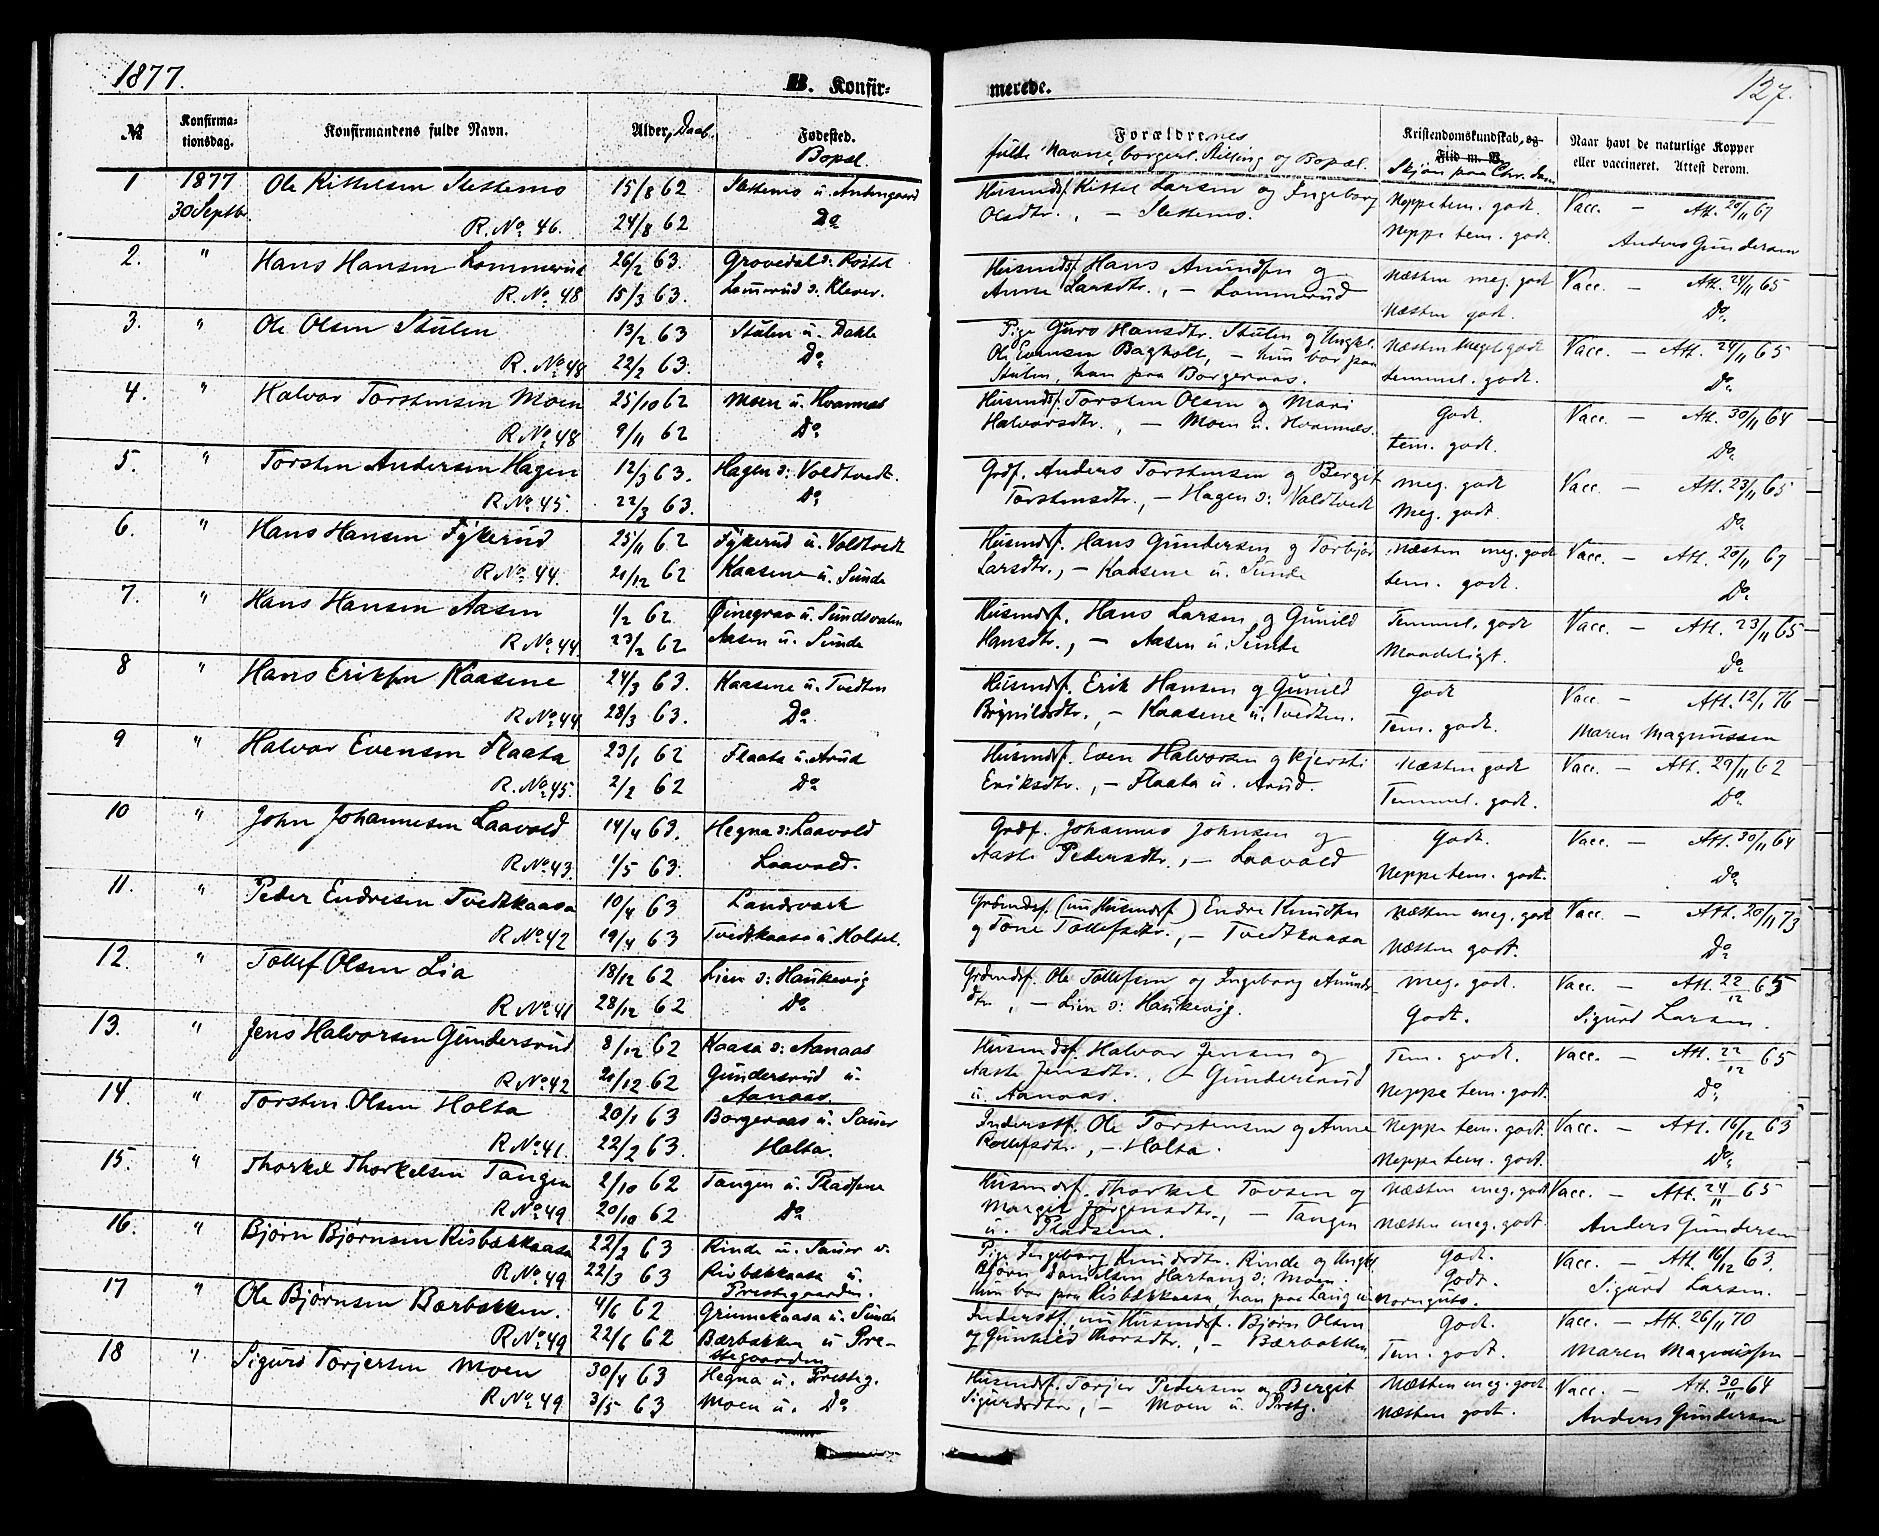 1877.
B. Konfir-
merede.
127.
№ Konfirma-tionsdag. Konfirmandens fulde Navn. Alder, Daab. Fødested. Bopæl. Forældrenes fulde Navne, borgerl. Stilling og Bopæl. Kristendomskundskab, og Flid m. V. Skjøn paa Chr. dom Naar havt de naturlige Kopper eller vaccineret. Attest derom.
1 1877 Ole Kittelsen Slettemo 15/8 62 Slettemo u. Husmdsf. Kittel Larsen og Ingeborg Neppe tem. godt. Vacc. — Att. 20/11 67
30 Septbr. R. No. 46. 24/8 62 Do Olsdtr., — Slettemo. Neppe tem. godt. Anders Gundersen
2. " Hans Hansen Lommerud 26/2 63. Grovedal s: Rostel Husmdsf. Hans Amundsen og Næsten meg. godt Vacc. — Att. 24/11 65
R. No. 48 15/3 63. Lommerud s: Klever. Anne Larsdtr., — Lommerud Næsten godt. Do.
3. " Ole Olsen Stulen 13/2 63 Stulen u. Dakle Pige Guro Hansdtr. Stulen og Ungkl. Næsten meget godt Vacc. — Att. 24/11 65
R. No. 48 22/2 63. Do Ole Evensen Bagholt, — hun bor paa temmel. godt. Do.
Stulen, han paa Borgeraas.
4. " Halvor Torstensen Moen 25/10 62 Moen u. Hvannes Husmdsf. Torsten Olsen og Mari Godt. Vacc. — Att. 30/11 64
R. No. 48 9/11 62 Do Halvorsdtr., — Moen u. Hvannæs. tem. godt. Do.
5. " Torsten Andersen Hagen 12/3 63. Hagen s: Voldtvedt. Grdf. Anders Torstensen og Berget meg. godt Vacc. — Att. 23/11 65
R. No. 45. 22/3 63. Do Torstensdtr., — Hagen s: Voldtvedt Meg. godt. Do.
6. " Hans Hansen Fykerud 25/11 62 Fykerud u. Voldtvedt Husmdsf. Hans Gundersen og Torbjør Næsten meg. godt Vacc. — Att. 20/11 67
R. No. 44. 21/12 62 Kaasene u. Sunde Larsdtr., — Kaasene u. Sunde tem. godt. Do.
7. " Hans Hansen Aasen 1/2 62. Øinegrav u. Sundsvalen Husmdsf. Hans Larsen og Gunild Temmel. godt Vacc. — Att. 23/11 65
R. No. 44. 23/2 62 Aasen u. Sunde Hansdtr., — Aasen u. Sunde Maadeligt. Do.
8 " Hans Eriksen Kaasene 24/3 63. Kaasene u. Tvedten Husmdsf. Erik Hansen og Gunild Godt Vacc. — Att. 12/1 76
R. No. 44. 28/3 63. Do. Brynildsdtr., — Kaasene u. Tvedten. Tem. godt. Maren Magnussen
9 " Halvor Evensen Flaata 23/1 62 Flaata u. Arud Husmdsf. Even Halvorsen og Kjersti Næsten godt Vacc. — Att. 29/11 62
R. No. 45. 2/2 62 Do Eriksdtr., — Flaata u. Arud. Temmel. godt. Do.
10 " John Johannesen Laavold 14/4 63. Hegna s: Laavold Grdf. Johannes Johnsen og Godt. Vacc. — Att. 30/11 64
R. No. 43. 1/5 63. Laavold. Aaste Pedersdtr., — Laavold Neppe tem. godt. Do.
11. " Peder Endresen Tvedtkaasa 10/4 63 Landsvark Grbrmdsf. (nu Husmdsf.) Endre Knudsen Næsten meg. godt Vacc. — Att. 20/11 73
R. No. 42 19/4 63 Tvedtkaasa u. Holtet. og Tone Tollefsdtr., — Tvedtkaasa Næsten godt. Do.
12. " Tollef Olsen Lia 18/12 62 Lien s: Haukevig Grdmdsf. Ole Tollefsen og Ingeborg Amunds- meg. godt. Vacc. — Att. 22/12 65
R. No. 41 28/12 62 Do dtr., — Lien s: Haukevig. Godt. Sigurd Larsen.
13. " Jens Halvorsen Gundersrud 8/12 62 Kaasa s: Aanaas Husmdsf. Halvor Jensen og Tem. godt. Vacc. — Att. 22/12 65
R. No. 42 21/12 62 Gundersrud u. Aaste Jensdtr., — Gundersrud Neppe tem. godt. Do.
Aanaas. u. Aanaas.
14. " Torsten Olsen Holta 20/1 63 Borgeraas u. Sauer Inderstf. Ole Torstensen og Anne Neppe tem. godt. Vacc. — Att. 16/12 63
R. No. 41. 22/2 63. Holta. Rollefsdtr., — Holta. Neppe tem. godt. Do.
15. " Thorkel Thorkelsen Tangen 2/10 62 Tangen u. Pladsene Husmdsf. Thorkel Tovsen og Næsten meg. godt Vacc. — Att. 24/11 65
R. No. 49 20/10 62 Do Margit Jørgensdtr., — Tangen Næsten meg. godt. Anders Gundersen
u. Pladsene.
16. " Bjørn Bjørnsen Risbækkaasa 22/2 63 Rinde u. Sauer v. Pige Ingeborg Knudsdtr. Rinde og Ungkl Godt. Vacc. — Att. 16/12 63.
R. No. 49 22/3 63 Risbækkaasa u. Bjørn Danielsen Hartang s: Moen. Godt. Sigurd Larsen.
Prestegaarden. Hun bor paa Risbækkaasa, han paa Lang u.
17 " Ole Bjørnsen Bærbækken. 4/6 62 Grinnekaasa u. Sunde Inderstf., nu Husmdsf. Bjørn Olsen Godt. Vacc. — Att. 26/11 70
R. No. 49 22/6 62 Bærbækken u. Pre- og Gunhild Thorsdtr., — Bærbækken Tem. godt. Maren Magnussen
stegaarden
18 " Sigurd Torjersen Moen 30/4 63 Hegna u. Presteg. Husmdsf. Torjer Pedersen og Berget Næsten meg. godt Vacc. — Att. 30/11 64
R. No. 49 3/5 63 Moen u. Do Sigurdsdtr., — Moen u. Prstg. Næsten godt. Anders Gundersen